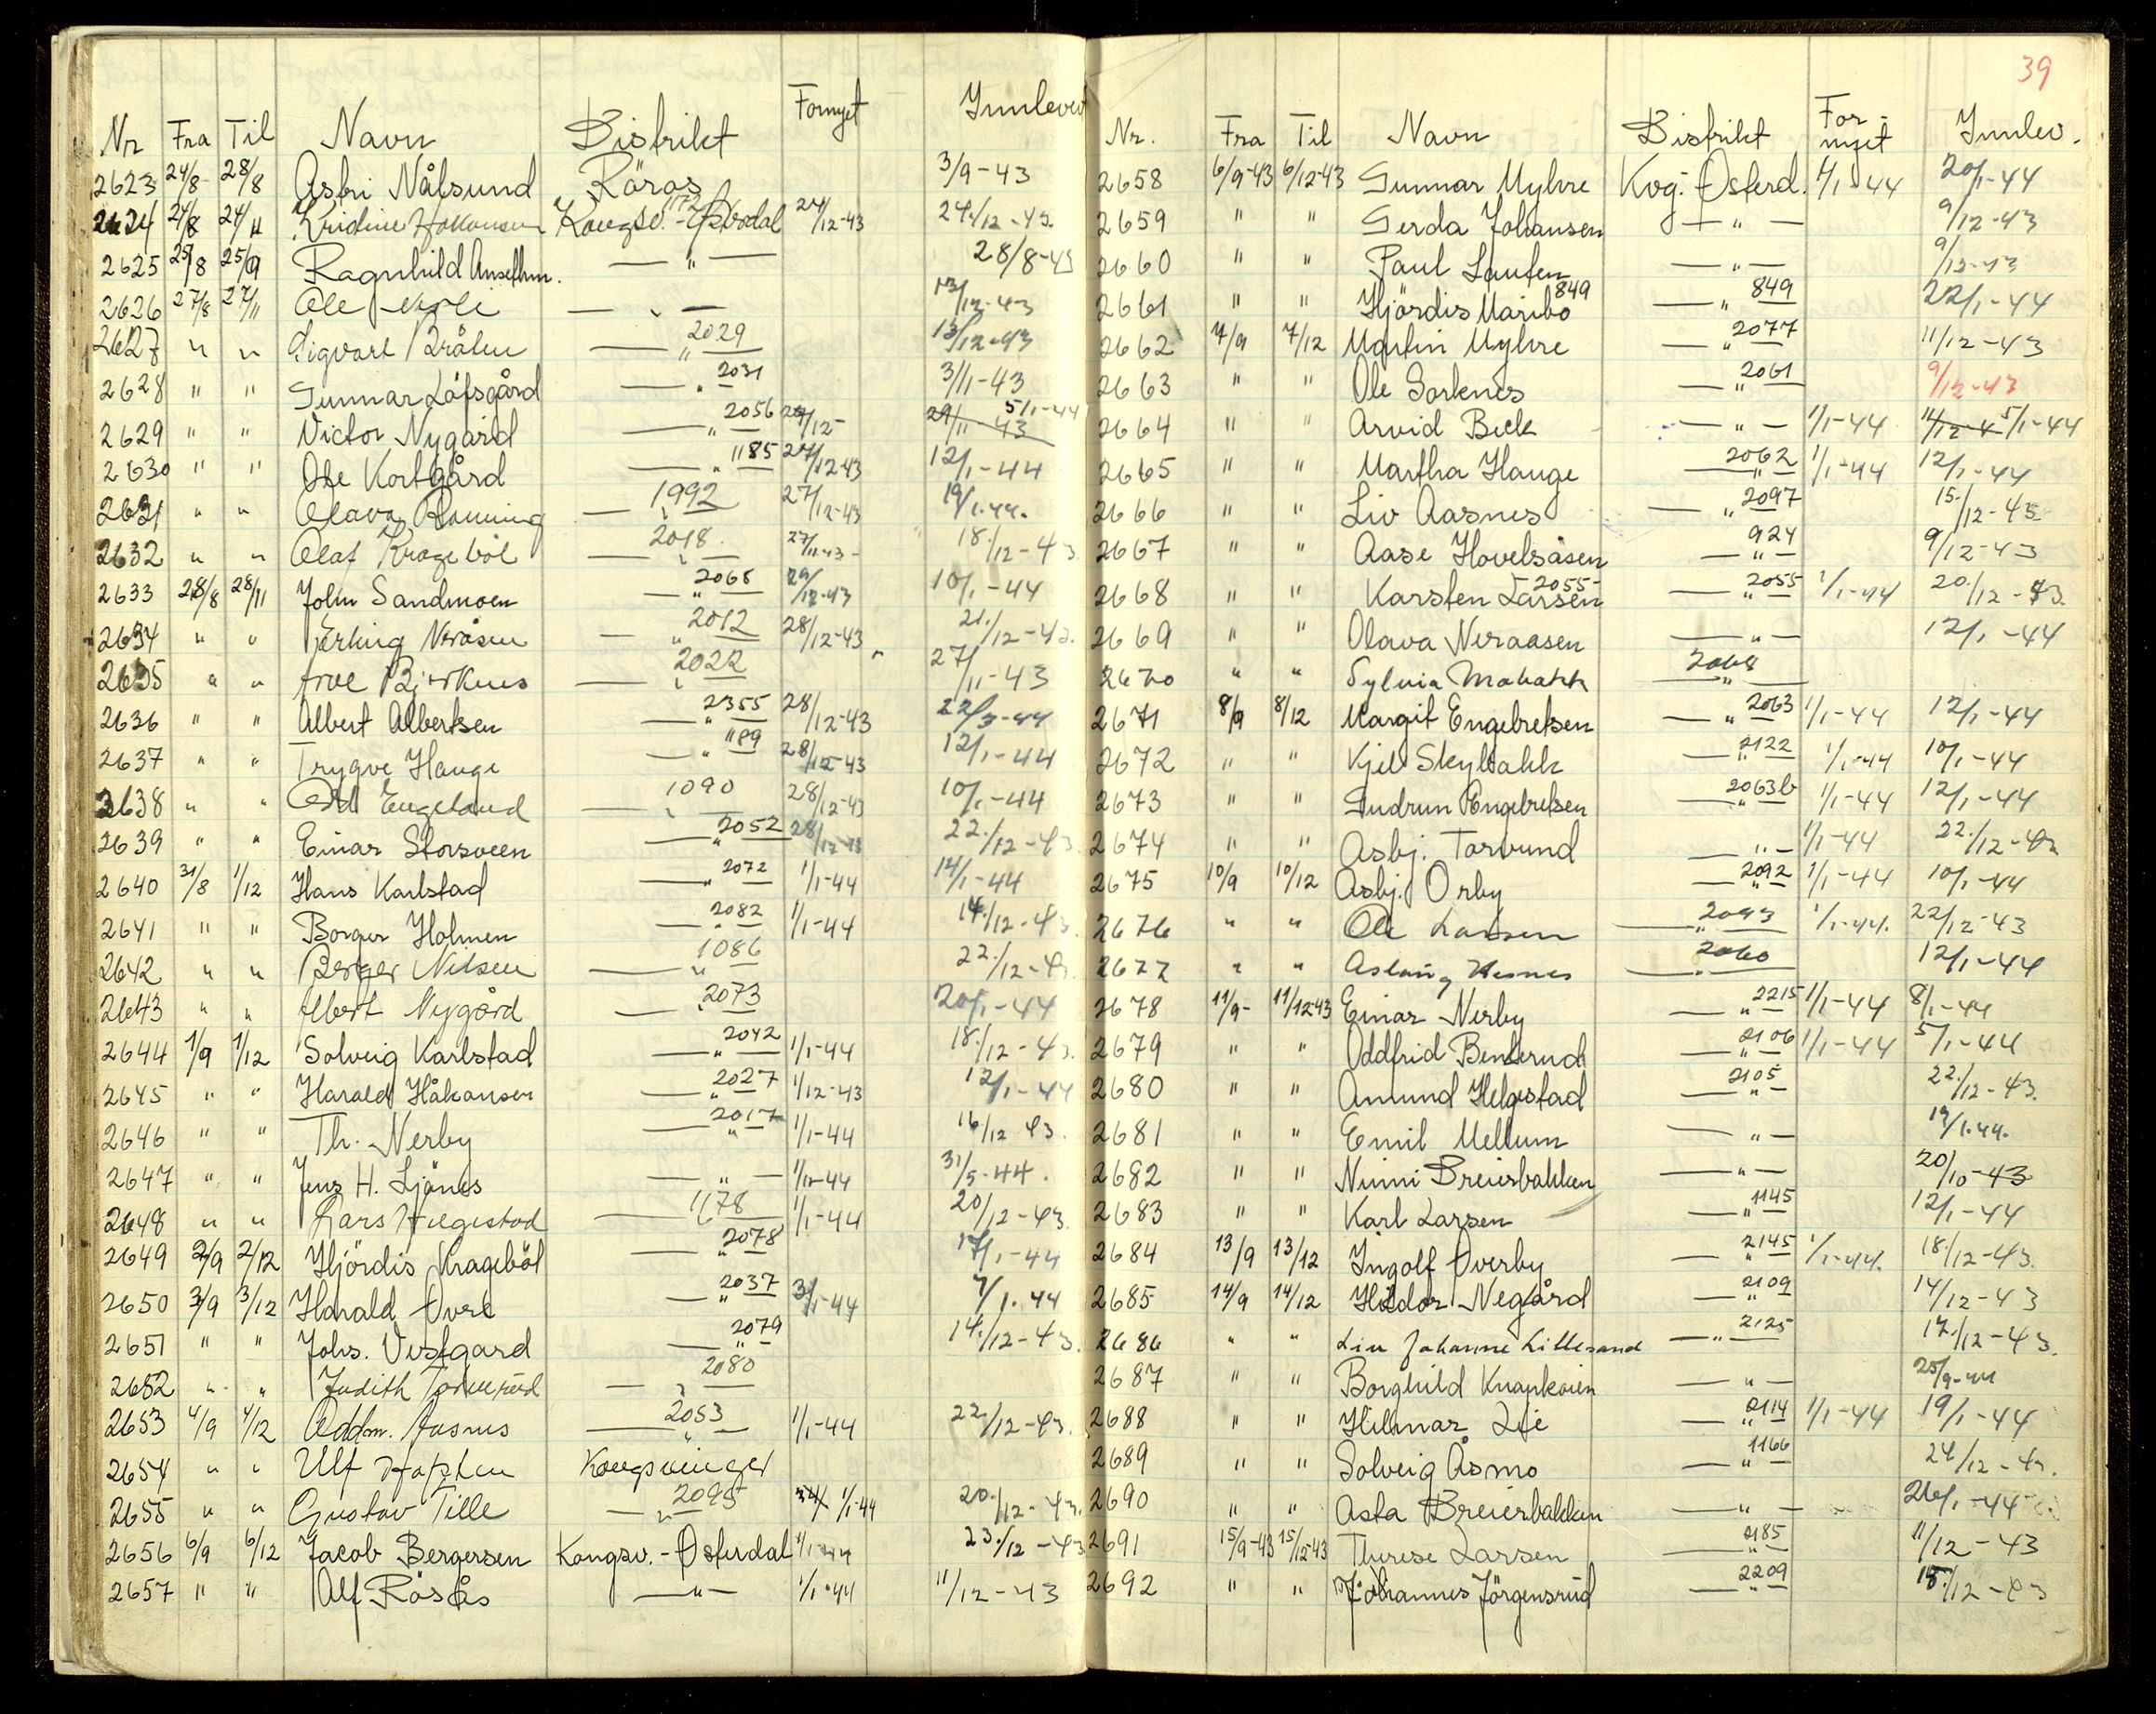 Nr Fra Til Navn Distrikt Fornyet Innlevert
2623 24/8 28/8 Asbri Nålsund Röros 3/9-43
2624 24/8 24/11 Kristine Håkansen Kongsv.-Österdal 1172 24/12-43 24./12-43.
2625 25/8 25/9 Ragnhild Anselhm. — " — 28/8-43
2626 27/8 27/11 Ole — " — 13/12-43
2627 " " Sigvart Bråten — " — 2029 13/12-43
2628 " " Gunnar Löfsgård — " — 2031 3/11-43
2629 " " Victor Nygård — " — 2056 27/12- 29/11-43 5/1-44
2630 " " Ole Kortgård — " — 1185 27/12-43 12/1-44
2631 " " Olava Ronning — " — 1992 27/12-43 19/1.44.
2632 " " Olaf Krageböl — " — 2018. 27/11-43- 18./12-43
2633 28/8 28/11 John Sandmoen — " — 2065 29/12-43 10/1-44
2634 " " Erling Neråsen — " — 2012 28/12-43 21./12-43.
2635 " " Arve Bjerknes — " — 2022 27/11-43
2636 " " Albert Albertsen — " — 2355 28/12-43 22/3-44
2637 " " Trygve Hauge — " — 1189 28/12-43 12/1-44
2638 " " Odd Engeland — " — 1090 28/12-43 10/1-44
2639 " " Einar Storsveen — " — 2052 28/12-43 22./12-43
2640 31/8 1/12 Hans Karlstad — " — 2072 1/1-44 14/1-44
2641 " " Borger Holmen — " — 2082 1/1-44 14./12-43.
2642 " " Berger Nilsen — " — 1086 22./12-43.
2643 " " Albert Nygård — " — 2073 20/1-44
2644 1/9 1/12 Solveig Karlstad — " — 2042 1/1-44 18./12-43.
2645 " " Harald Håkansen — " — 2027 1/12-43 12/1-44
2646 " " Th. Nerby — " — 2017 1/1-44 16/12 43.
2647 " " Jens H. Ljönes — " — 1/1-44 31/5-44.
2648 " " Lars Helgestad — " — 1178 1/1-44 20/12-43.
2649 2/9 2/12 Hjördis Krageböl — " — 2078 17/1-44
2650 3/9 3/12 Harald Övre — " — 2037 3/1-44 7/1.44
2651 " " Johs. Vestgard — " — 2079 14./12-43.
2652 " " Judith — " — 2080
2653 4/9 4/12 Oddm. Aasnes — " — 2053 1/1-44 22./12-43.
2654 " " Ulf Kongsvinger
2655 " " Gustav Tille — " — 2095 1/1-44 20./12-43.
2656 6/9 6/12 Jacob Bergersen Kongsv.-Österdal 1/1-44 23./12-43
2657 " " Alf Rösås — " — 1/1-44 11/12-43
39
Nr. Fra Til Navn Distrikt For-nyet Innlev.
2658 6/9-43 6/12-43 Gunnar Myhre Kvg.-Österd. 1/1-44 20/1-44
2659 " " Gerda Johansen — " — 9/12-43
2660 " " Paul Lauten — " — 9/12-43
2661 " " Hjördis Maribo 849 — " — 849 22/1-44
2662 7/9 7/12 Martin Myhre — " — 2077 11/12-43
2663 " " Ole Sorknes — " — 2061 9/12-43
2664 " " Arvid Beck — " — 1/1-44 14/12-4 5/1-44
2665 " " Martha Hauge — " — 2062 1/1-44 12/1-44
2666 " " Liv Aasnes — " — 2097 15./12-43
2667 " " Aase Hovelsåsen — " — 924 9/12-43
2668 " " Karsten Larsen 2055 — " — 2055 1/1-44 20./12-43.
2669 " " Olava Neraasen — " — 12/1-44
2670 " " Sylvia — " — 2068
2671 8/9 8/12 Margit Engebretsen — " — 2063 1/1-44 12/1-44
2672 " " Kjell Skylbakk — " — 2122 1/1-44 10/1-44
2673 " " Gudrun Engebretsen — " — 2063b 1/1-44 12/1-44
2674 " " Asbj. Torvund — " — 1/1-44 22./12-43
2675 10/9 10/12 Asbj. Orby — " — 2092 1/1-44 10/1-44
2676 " " Ole Larsen — " — 2093 1/1-44. 22/12-43
2677 " " Aslaug — " — 2060 12/1-44
2678 11/9- 11/12-43 Einar Nerby — " — 2215 1/1-44 8/1-44
2679 " " Oddfrid Benterud — " — 2106 1/1-44 5/1-44
2680 " " Amund Helgestad — " — 2105 22./12-43.
2681 " " Emil Mellum — " — 19/1.44.
2682 " " Ninni Breiersbakken — " — 20/10-43
2683 " " Karl Larsen — " — 1145 12/1-44
2684 13/9 13/12 Ingolf Överby — " — 2145 1/1-44. 18./12-43.
2685 14/9 14/12 Haldor Negård — " — 2109 14/12-43
2686 " " Liv Johanne Lillesand — " — 2125 17./12-43.
2687 " " Borghild Knapkoien — " — 25/9-44
2688 " " Hilmar Lie — " — 2114 1/1-44 19/1-44
2689 " " Solveig Åsmo — " — 1166 24/12-43.
2690 " " Asta Breiersbakken — " — 26/1-44
2691 15/9-43 15/12-43 Therese Larsen — " — 2185 11/12-43
2692 " " Johannes Jörgensrud — " — 2209 18./12-43